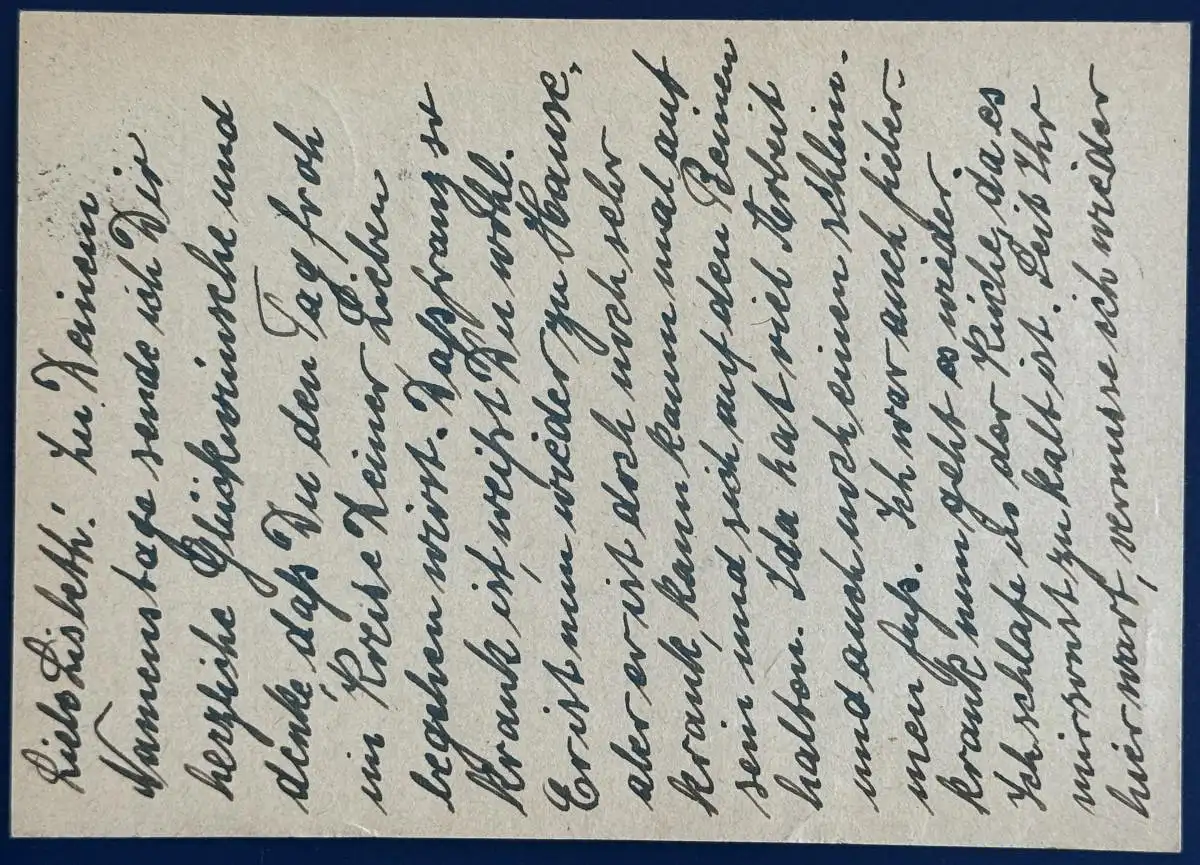 Liebe Lisbeth! Zu Deinem
Namenstage sende ich Dir
herzliche Glückwünsche und
denke, daß Du den Tag froh
im Kreise Deiner Lieben
begehen wirst. Daß Franz so
krank ist, weißt Du wohl.
Er ist nun wieder zu Hause,
aber er ist doch noch sehr
krank, kann kaum mal auf
sein und sich auf den Beinen
halten. Ida hat viel Arbeit
und auch noch einen schlim-
men Fuß. Ich war auch fieber-
krank nun geht es wieder.
Ich schlafe in der Küche, da es
mir sonst zu kalt ist. Seit Ihr
hier wart, vermisse ich wieder